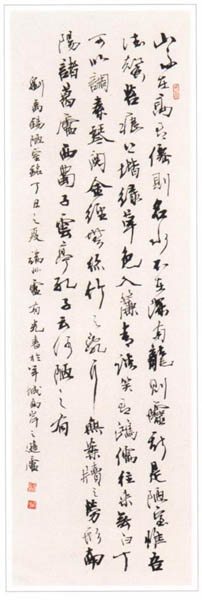 山不在高有僊則名水不在深有龍則靈斯是陋室惟吾
德馨苔痕上階綠草色入簾青談笑有鴻儒往來無白丁
可以調素琴閱金經無絲竹之亂耳無案牘之勞形南
陽諸葛廬西蜀子雲亭孔子云何陋之有
劉禹錫陋室銘丁丑之夏端州盧有光書於羊城